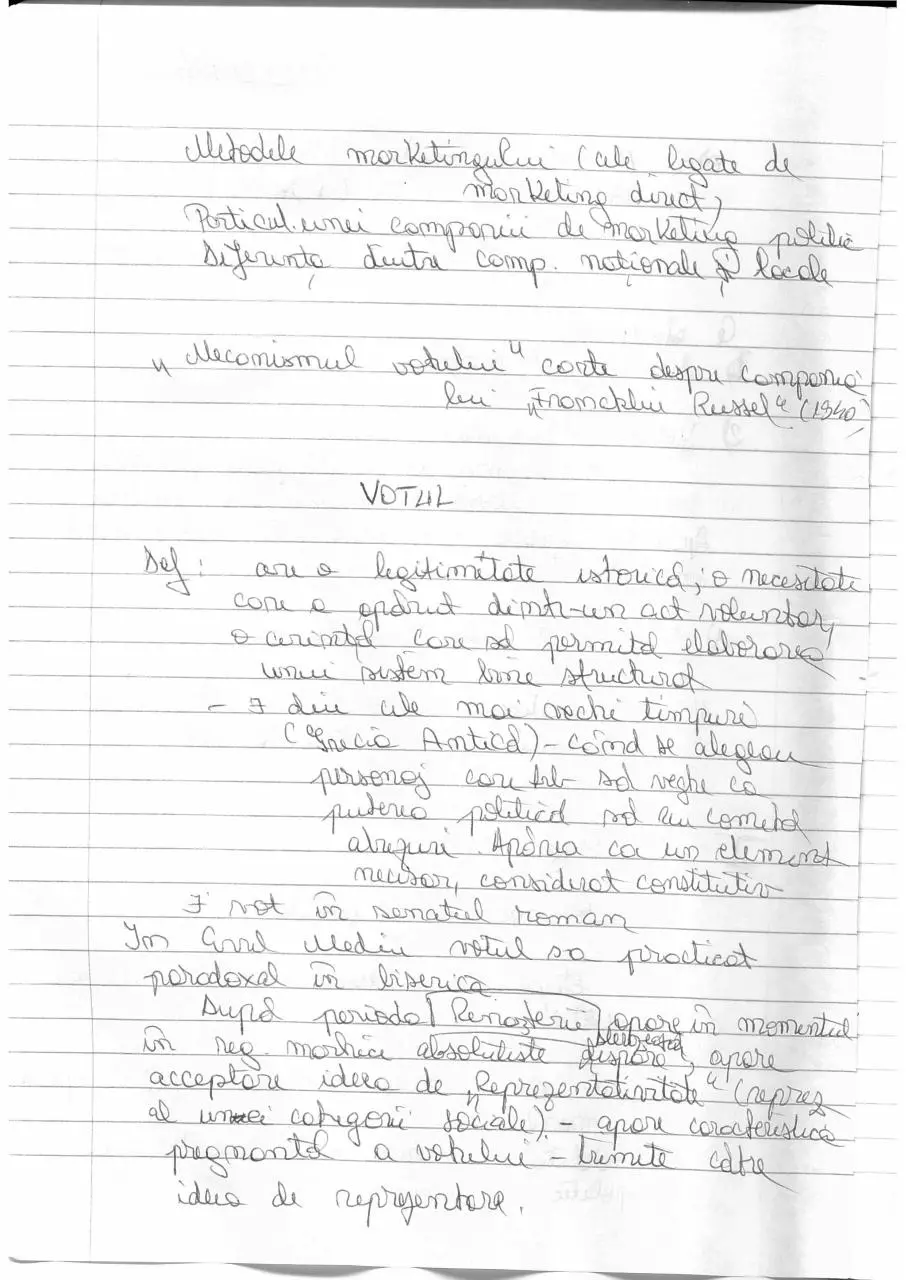 Metodele marketingului (cele legate de
marketing direct)
Particul. unei companii de marketing politic
Diferența dintre comp. naționale și locale
„Mecanismul votului" carte despre campania
lui „Francklin Russel" (1940)
VOTUL
Def: are o legitimitate istorică, o necesitate
care a apărut dintr-un act voluntar,
o cerință care să permită elaborarea
unui sistem bine structurat
- ∃ din cele mai vechi timpuri
(Grecia Antică) - când se alegeau
personaj care treb să veghe ca
puterea politică să nu comită
abuzuri. Apărea ca un element
necesar, considerat constitutiv
∃ vot în senatul roman
În Evul Mediu votul sa practicat
paradoxal în biserica
După perioada Renașterii apare în momentul
în reg. absolutiste dispare, apare
acceptare ideea de „Reprezentativitate" (reprez
al unei categorii sociale) - apare caracteristica
pregnantă a votului - trimite către
ideea de reprezentare.